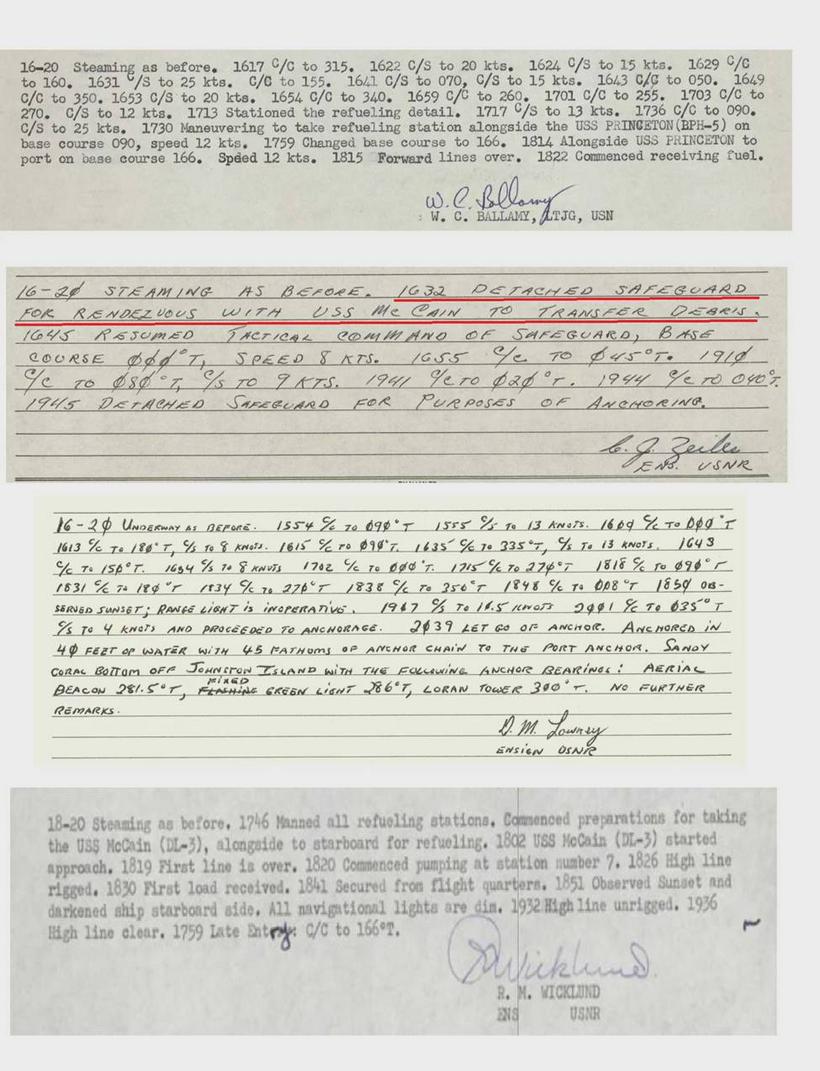 16-20 Steaming as before. 1617 C/C to 315. 1622 C/S to 20 kts. 1624 C/S to 15 kts. 1629 C/C
to 160. 1631 C/S to 25 kts. C/C to 155. 1641 C/S to 070, C/S to 15 kts. 1643 C/C to 050. 1649
C/C to 350. 1653 C/S to 20 kts. 1654 C/C to 340. 1659 C/C to 260. 1701 C/C to 255. 1703 C/C to
270. C/S to 12 kts. 1713 Stationed the refueling detail. 1717 C/S to 13 kts. 1736 C/C to 090.
C/S to 25 kts. 1730 Maneuvering to take refueling station alongside the USS PRINCETON(BPH-5) on
base course 090, speed 12 kts. 1759 Changed base course to 166. 1814 Alongside USS PRINCETON to
port on base course 166. Speed 12 kts. 1815 Forward lines over. 1822 Commenced receiving fuel.
W. C. Ballamy
W. C. BALLAMY, LTJG, USN
16-2Ø STEAMING AS BEFORE. 1632 DETACHED SAFEGUARD
FOR RENDEZVOUS WITH USS McCAIN TO TRANSFER DEBRIS.
1645 RESUMED TACTICAL COMMAND OF SAFEGUARD, BASE
COURSE ØØØ°T, SPEED 8 KTS. 1655 C/C TO Ø45°T. 191Ø
C/C TO Ø8Ø°T, C/S TO 9 KTS. 1941 C/C TO Ø2Ø°T. 1944 C/C TO 040°T.
1945 DETACHED SAFEGUARD FOR PURPOSES OF ANCHORING.
C. J. Zeiler
ENS. USNR
16-2Ø UNDERWAY AS BEFORE. 1554 C/C TO Ø9Ø°T 1555 C/S TO 13 KNOTS. 16Ø9 C/C TO ØØØ°T
1613 C/C TO 18Ø°T, C/S TO 8 KNOTS. 1615 C/C TO Ø9Ø°T. 1635 C/C TO 335°T, C/S TO 13 KNOTS. 1643
C/C TO 15Ø°T. 1654 C/S TO 8 KNOTS 17Ø2 C/C TO ØØØ°T. 1715 C/C TO 27Ø°T 1818 C/C TO Ø9Ø°T
1831 C/C TO 18Ø°T 1834 C/C TO 27Ø°T 1838 C/C TO 35Ø°T 1848 C/C TO ØØ8°T 185Ø OB-
SERVED SUNSET; RANGE LIGHT IS INOPERATIVE. 19Ø7 C/S TO 10.5 KNOTS 2ØØ1 C/C TO Ø35°T
C/S TO 4 KNOTS AND PROCEEDED TO ANCHORAGE. 2Ø39 LET GO OF ANCHOR. ANCHORED IN
4Ø FEET OF WATER WITH 45 FATHOMS OF ANCHOR CHAIN TO THE PORT ANCHOR. SANDY
CORAL BOTTOM OFF JOHNSTON ISLAND WITH THE FOLLOWING ANCHOR BEARINGS: AERIAL
BEACON 281.5°T, FLASHING FIXED GREEN LIGHT 286°T, LORAN TOWER 3ØØ°T. NO FURTHER
REMARKS.
D. M. Lowney
ENSIGN USNR
18-20 Steaming as before. 1746 Manned all refueling stations. Commenced preparations for taking
the USS McCain (DL-3), alongside to starboard for refueling. 1802 USS McCain (DL-3) started
approach. 1819 First line is over. 1820 Commenced pumping at station number 7. 1826 High line
rigged. 1830 First load received. 1841 Secured from flight quarters. 1851 Observed Sunset and
darkened ship starboard side. All navigational lights are dim. 1932 High line unrigged. 1936
High line clear. 1759 Late Entry: C/C to 166°T.
RMWicklund.
R. M. WICKLUND
ENS USNR